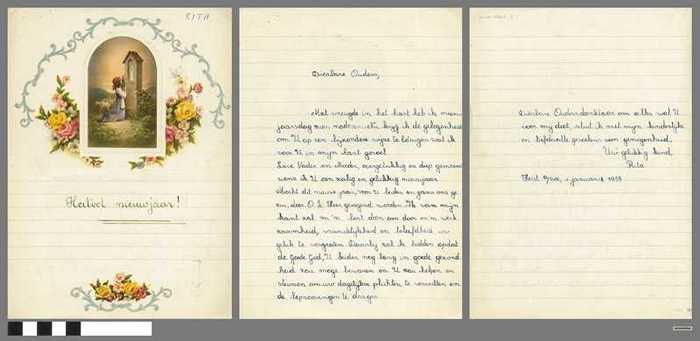 RITA
Heilvol nieuwjaar!
Dierbare Ouders,
Met vreugde in het hart heb ik
jaarsdag krijg ik de gelegenheid
om U op een bijzondere wijze te betuigen wat ik
voor U in mijn hart gevoel.
Lieve Vader en Moeder, overgelukkig en diep gemeend
wens ik U een zalig en gelukkig nieuwjaar.
Mocht dit nieuw jaar, voor U beiden en gans ons ge
zin, door O. L. Heer gezegend worden. Ik van mijn
kant zal m'n best doen om door m'n werk
zaamheid, vriendelijkheid en beleefdheid uw
geluk te vergroten. Daarbij zal ik bidden opdat
de Goede God, U beiden nog lang in goede gezond
heid zou moge bewaren en U zou helpen en
steunen om uw dagelijkse plichten te vervullen en
de beproevingen te dragen.
Dierbare Ouders, dankbaar om alles wat U
voor mij doet, sluit ik met mijn kinderlijke
en liefdevolle groeten van genegenheid,
Uw gelukkig kind,
Rita
1 januari 1958